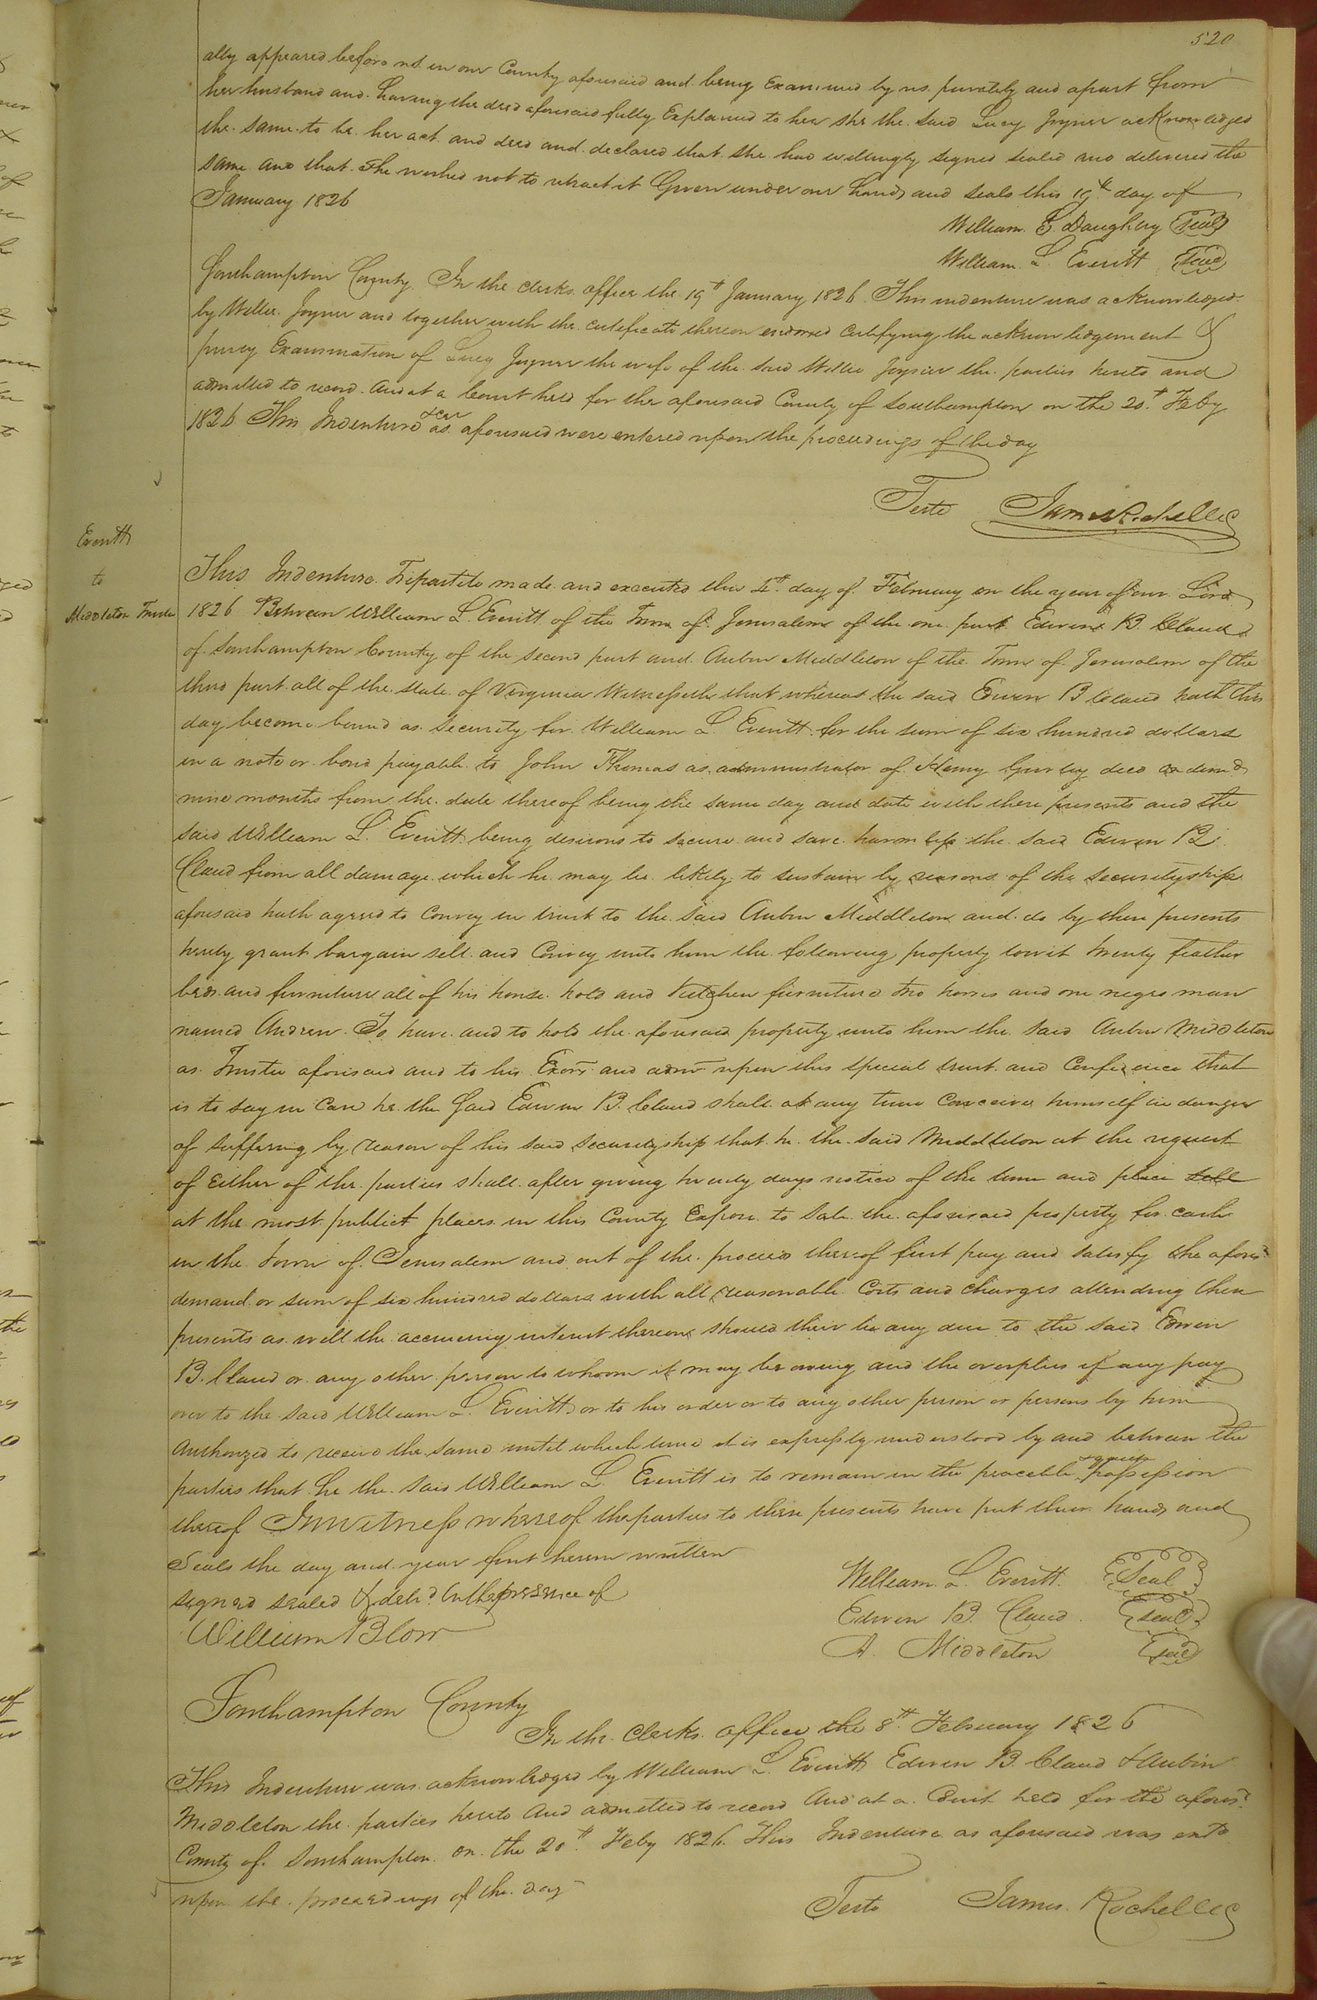 520
ally appeared before us in our County aforesaid and being Examined by us privately and apart from
her husband and having the deed aforesaid fully Explained to her she the said Lucy Joyner acknowledged
the same to be her act and deed and declared that she had willingly signed sealed and delivered the
same and that she wished not to retract it Given under our hands and seals this 19th day of
January 1826
William E Daughtry Seal
William L. Everitt Seal
Southampton County In the clerks office the 19th January 1826 This indenture was acknowledged
by Willie Joyner and together with the certificate thereon endorsed certifying the acknowledgement &
privy Examination of Lucy Joyner the wife of the said Willie Joyner the parties hereto and
admitted to record And at a Court held for the aforesaid County of Southampton on the 20th Feby
1826 This Indenture as aforesaid were entered upon the proceedings of the day
Teste James Rochelle
Everitt
to
Middleton Trustee
This Indenture Tripartite made and executed this 4th day of February in the year of our Lord
1826 Between William L. Everitt of the Town of Jerusalem of the one part Edwin B. Claud
of Southampton County of the second part and Aubin Middleton of the Town of Jerusalem of the
third part all of the state of Virginia Witnesseth that whereas the said Edwin B Claud hath this
day become bound as Security for William L Everitt for the sum of six hundred dollars
in a note or bond payable to John Thomas as administrator of Henry Gurley decd on demd
nine months from the date thereof being the same day and date with these presents and the
said William L Everitt being desirous to secure and save harmless the said Edwin B
Claud from all damage which he may be likely to sustain by reasons of the securityship
aforesaid hath agreed to Convey in trust to the said Aubin Middleton and do by these presents
hereby grant bargain sell and Convey unto him the following property towit twenty feather
beds and furniture all of his house hold and Kitchen furniture two horses and one negro man
named Andrew To have and to hold the aforesaid property unto him the said Aubin Middleton
as Trustee aforesaid and to his Exors and admr upon this special trust and Confidence that
is to say in Case he the said Edwin B. Claud shall at any time Conceive himself in danger
of suffering by reason of his said securityship that he the said Middleton at the request
of Either of the parties shall after giving twenty days notice of the time and place sell
at the most publick places in this County Expose to sale the aforesaid property for cash
in the Town of Jerusalem and out of the proceeds thereof first pay and satisfy the aforesd
demand or sum of six hundred dollars with all reasonable Costs and charges attending these
presents as well the accruing interest thereon should their be any due to the said Edwin
B. Claud or any other person to whom it may be owing and the overplus if any pay
over to the said William L. Everitt or to his order or to any other person or persons by him
Authorized to receive the same until which time it is expressly understood by and between the
parties that he the said William L Everitt is to remain in the peaceble & quiet possession
thereof In witness whereof the parties to these presents have put their hands and
Seals the day and year first herein written
signed sealed & deld. In the presence of
William Blow
William L. Everitt. Seal
Edwin B. Claud. Seal
A. Middleton Seal
Southampton County
In the Clerks office the 8th February 1826
This Indenture was acknowledged by William L. Everitt Edwin B. Claud & Aubin
Middleton the parties hereto And admitted to record And at a Court held for the aforesd
County of Southampton on the 20th Feby 1826 This Indenture as aforesaid was entd
upon the proceedings of the day
Teste James Rochelle